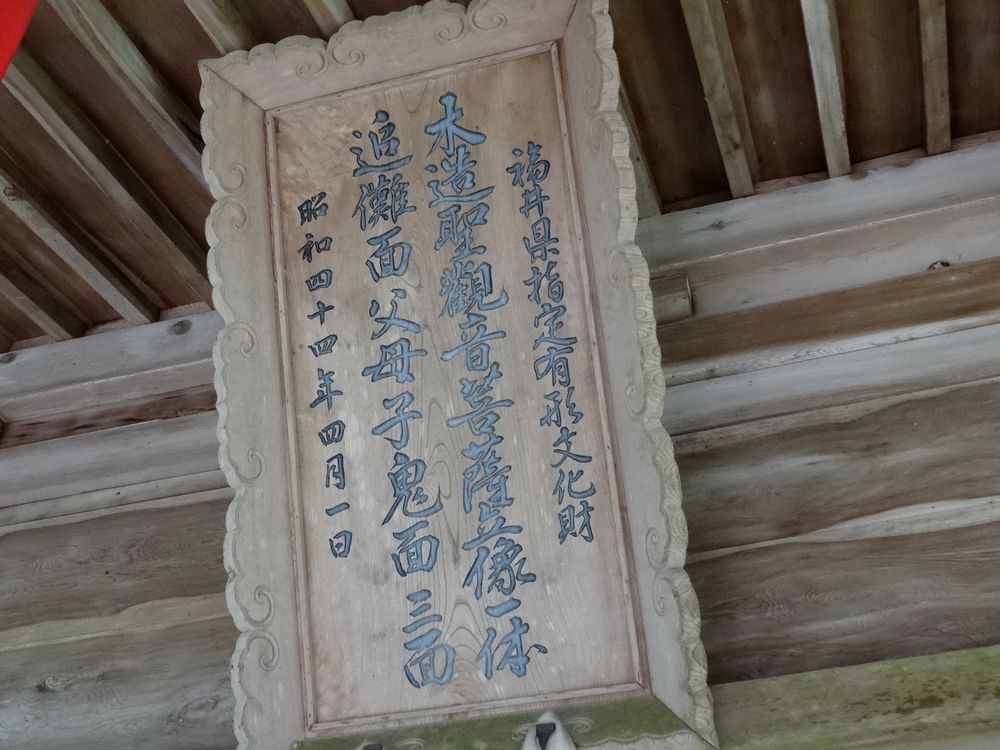 福井県指定有形文化財
木造聖觀音菩薩立像一体
追儺面父母子鬼面三面
昭和四十四年四月一日